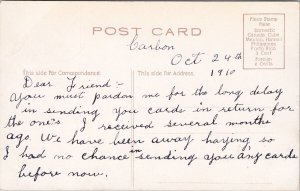 POST CARD
Place Stamp
Here
Domestic
Canada, Cuba
Mexico, Hawaii
Philippines
Porto Rico
1 Cent
Foreign
2 Cents
Carbon
Oct 24th
1910
This side for Correspondence.
This side for Address.
Dear Friend :-
You must pardon me for the long delay
in sending you cards in return for
the one's I received several months
ago. We have been away haying so
I had no chance in sending you any cards
before now.